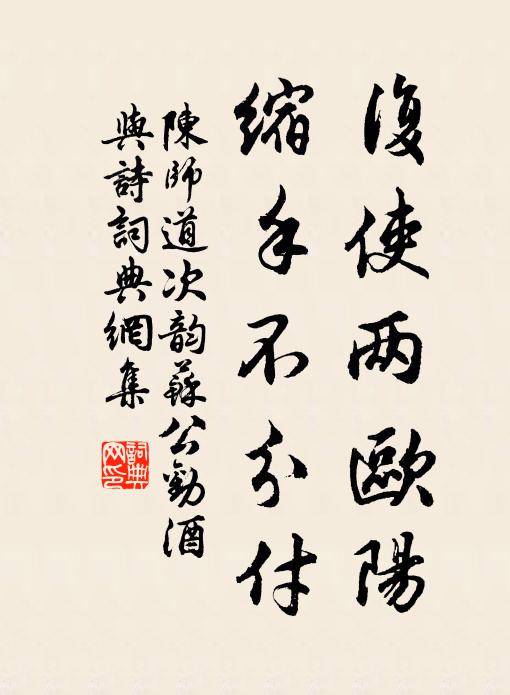 復使两歐陽
縮手不分付
陳師道次韵蘇公勸酒
與詩詞典網集
詞典網印